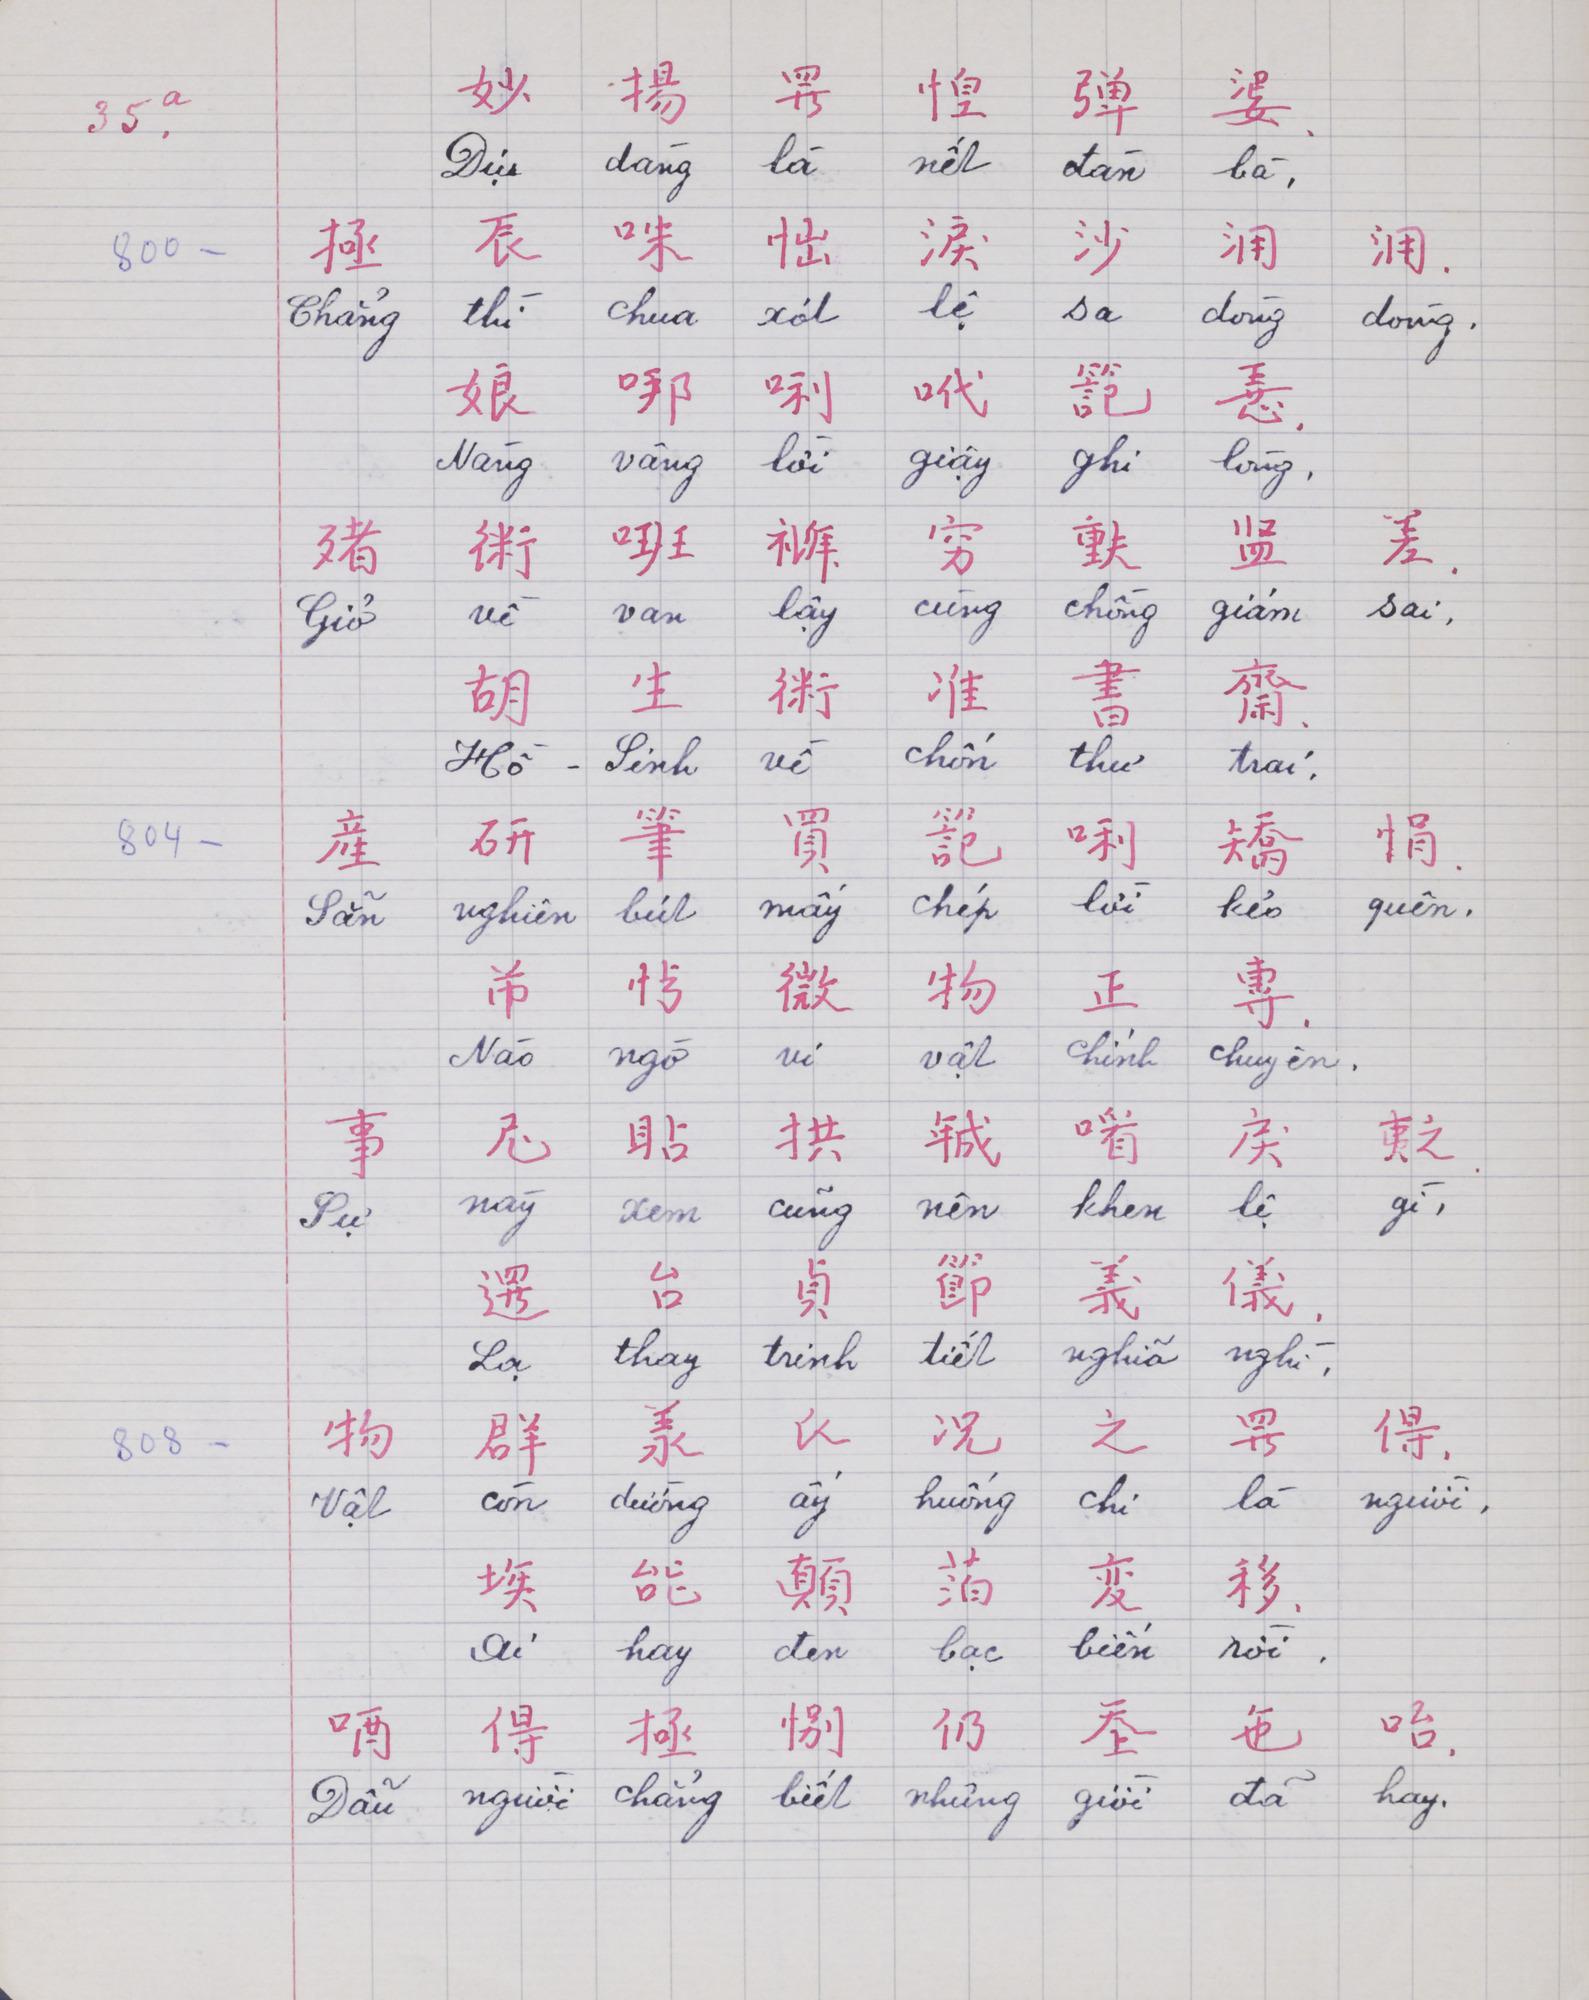 35.a
妙 揚 𱺵 惶 弾 婆.
Dịu dàng là nết đàn bà,
800 – 拯 辰 咮 怞 淚 沙 泂 泂.
Chẳng thì chua xót lệ sa dòng dòng.
娘 㖇 唎 吪 範 悥.
Nàng vâng lời giậy ghi lòng,
𪿗 術 𠵘 穷 監 差.
Giở về van lậy cùng chồng giám sai,
胡 生 術 准 書 齋.
Hồ - Sinh về chốn thư trai,
804 – 産 研 筆 買 範 唎 矯 悁.
Sẵn nghiên bút mấy chép lời kẻo quên.
芇 微 物 正 專.
Nào ngờ vi vật chính chuyên.
事 尼 貼 拱 𢧚 㗂 戾 之.
Sự này xem cũng nên khen lệ gì,
邏 台 貞 節 義 儀.
Lạ thay trinh tiết nghĩa nghì,
808 – 物 群 羕 氏 况 之 𱺵 得.
Vật còn dường ấy huống chi là người,
埃 能 顛 泊 変 移.
Ai hay đen bạc biến rời.
唒 得 拯 別 仍 𡗶 㐌 咍.
Dẫu người chẳng biết nhưng giời đã hay.